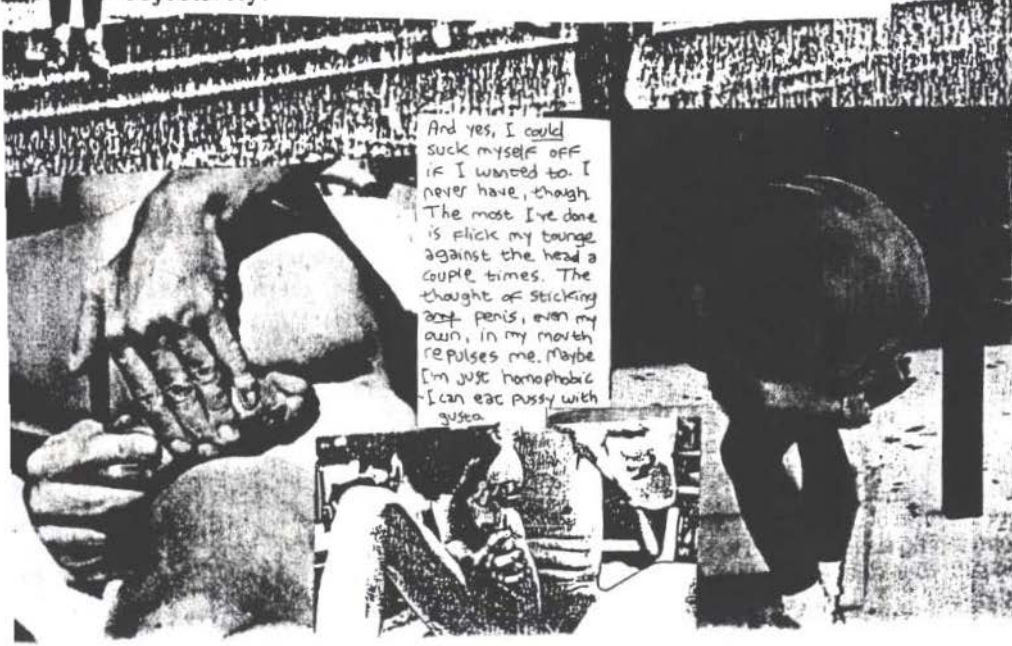 And yes, I could
suck myself off
if I wanted to. I
never have, though
The most I've done
is flick my tounge
against the head a
couple times. The
thought of sticking
any penis, even my
own, in my mouth
repulses me. Maybe
I'm just homophobic
-I can eat pussy with
gusto.